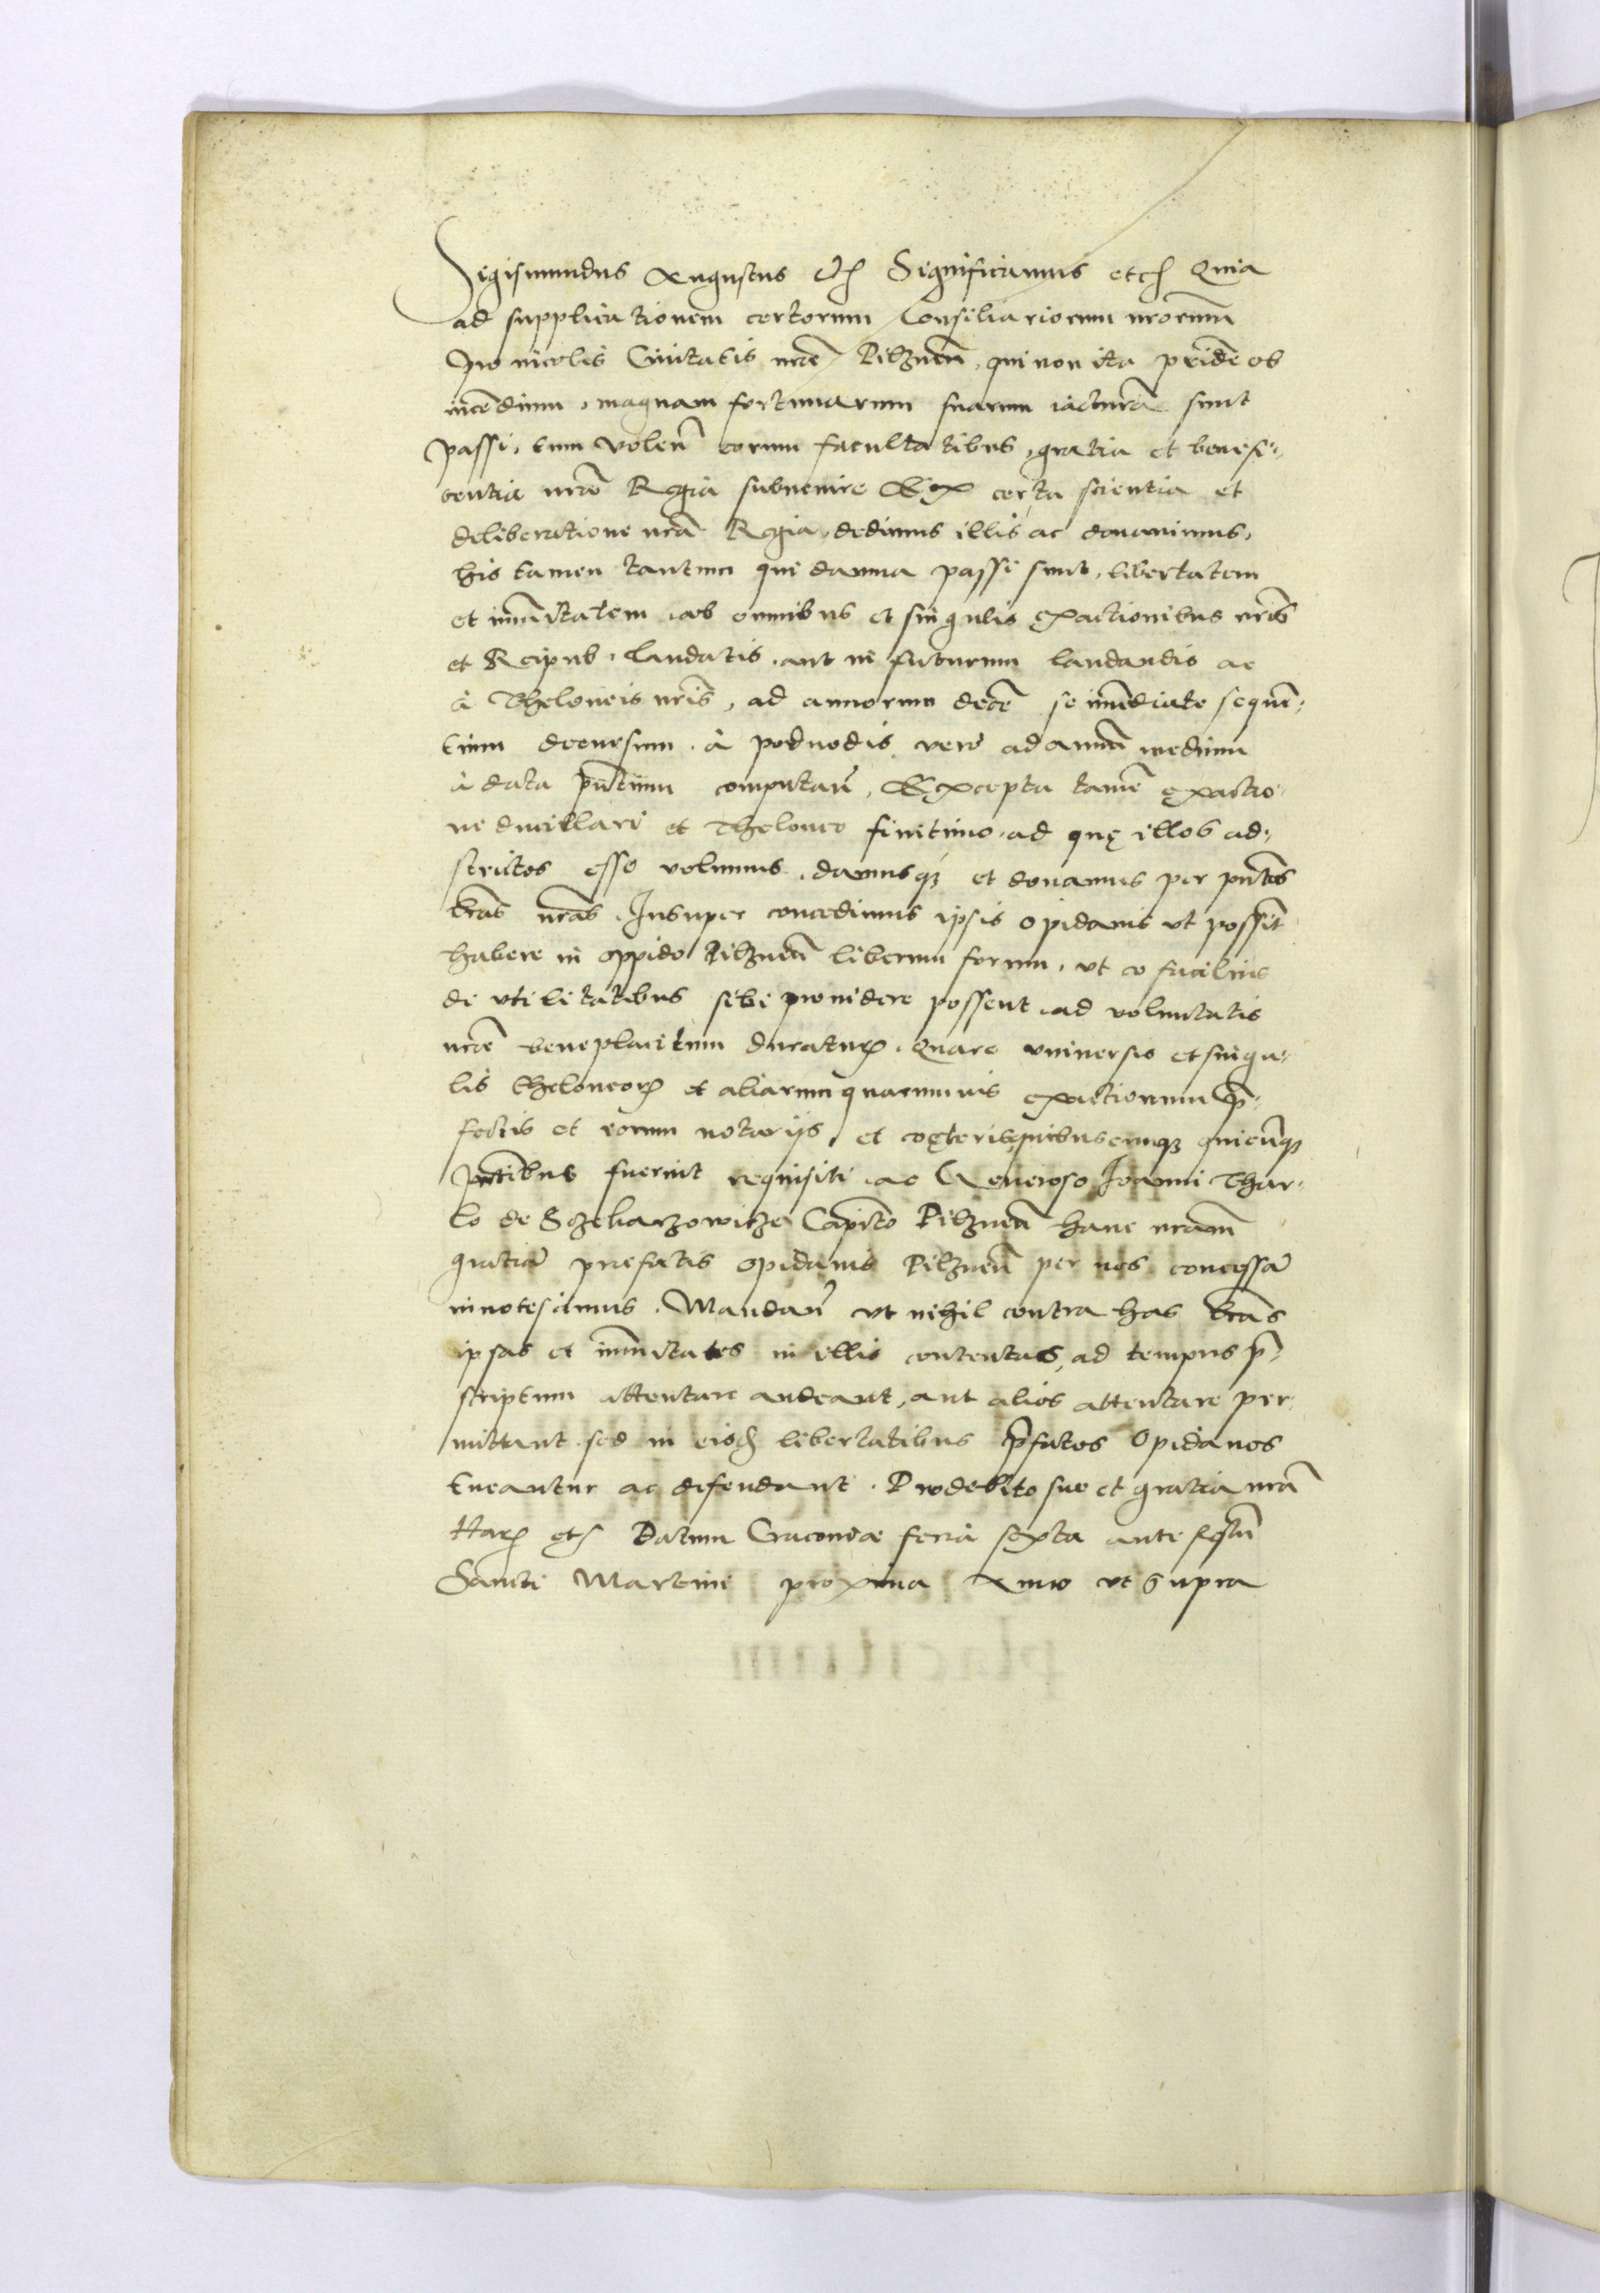 Sigismundus Augustus etc Significamus etc Quia
ad supplicationem certorum Consiliariorum nrorum
pro incolis Ciuitatis nrae Pilznen̄, qui non ita pridē ob
incēdium, magnam fortunarum suarum iacturā sunt
passi, tum volen̄ eorum facultatibus, gratia et benefi-
centia nrā Regia subuenire Ex certa scientia et
deliberatione nrā Regia, dedimus illis ac donauimus,
his tamen tantum qui damna passi sunt, libertatem
et im̄unitatem ab omnibus et singulis exactionibus nrīs
et Reipub. laudatis, aut in futurum laudandis ac
à Theloneis nrīs, ad annorum decē se im̄ediate sequēn-
tium decursum, à poduodis vero ad annū medium
à data pn̄tium computan̄, Excepta tamē exactio-
ne ducillari et Theloneo finitimo, ad quę illos ad-
strictos esse volumus, damusq; et donamus per pn̄tes
lrās nrās. Insuper concedimus ipsis opidanis vt possint
habere in oppido Pilznen̄ liberum forum, vt eo facilius
de vtilitatibus sibi prouidere possent, ad voluntatis
nrāe beneplacitum duratur. Quare vniuersis et singu-
lis theloneor et aliarum quarumuis exactionum p̄-
fectis et eorum notarijs, et cęteris quibuscunq; quicunq;
pn̄tibus fuerint requisiti ac Generoso Ioanni Thar-
lo de Sczekarzowicze Capitō Pilznen̄ hanc nrām
gratiā prefatis opidanis Pilznen̄ per nos concessā
innotescimus. Mandan̄ vt nihil contra has lrās
ipsas et im̄unitates in illis contentas, ad tempus p̄-
scriptum attentare audeant, aut alios attentare per-
mittant, sed in eisd libertatibus p̄fatos Opidanos
tueantur ac defendant. Pro debito suo et gratia nrā
Har etc Datum Cracouiae feria sexta ante festū
Sancti Martini proxima Anno vt supra